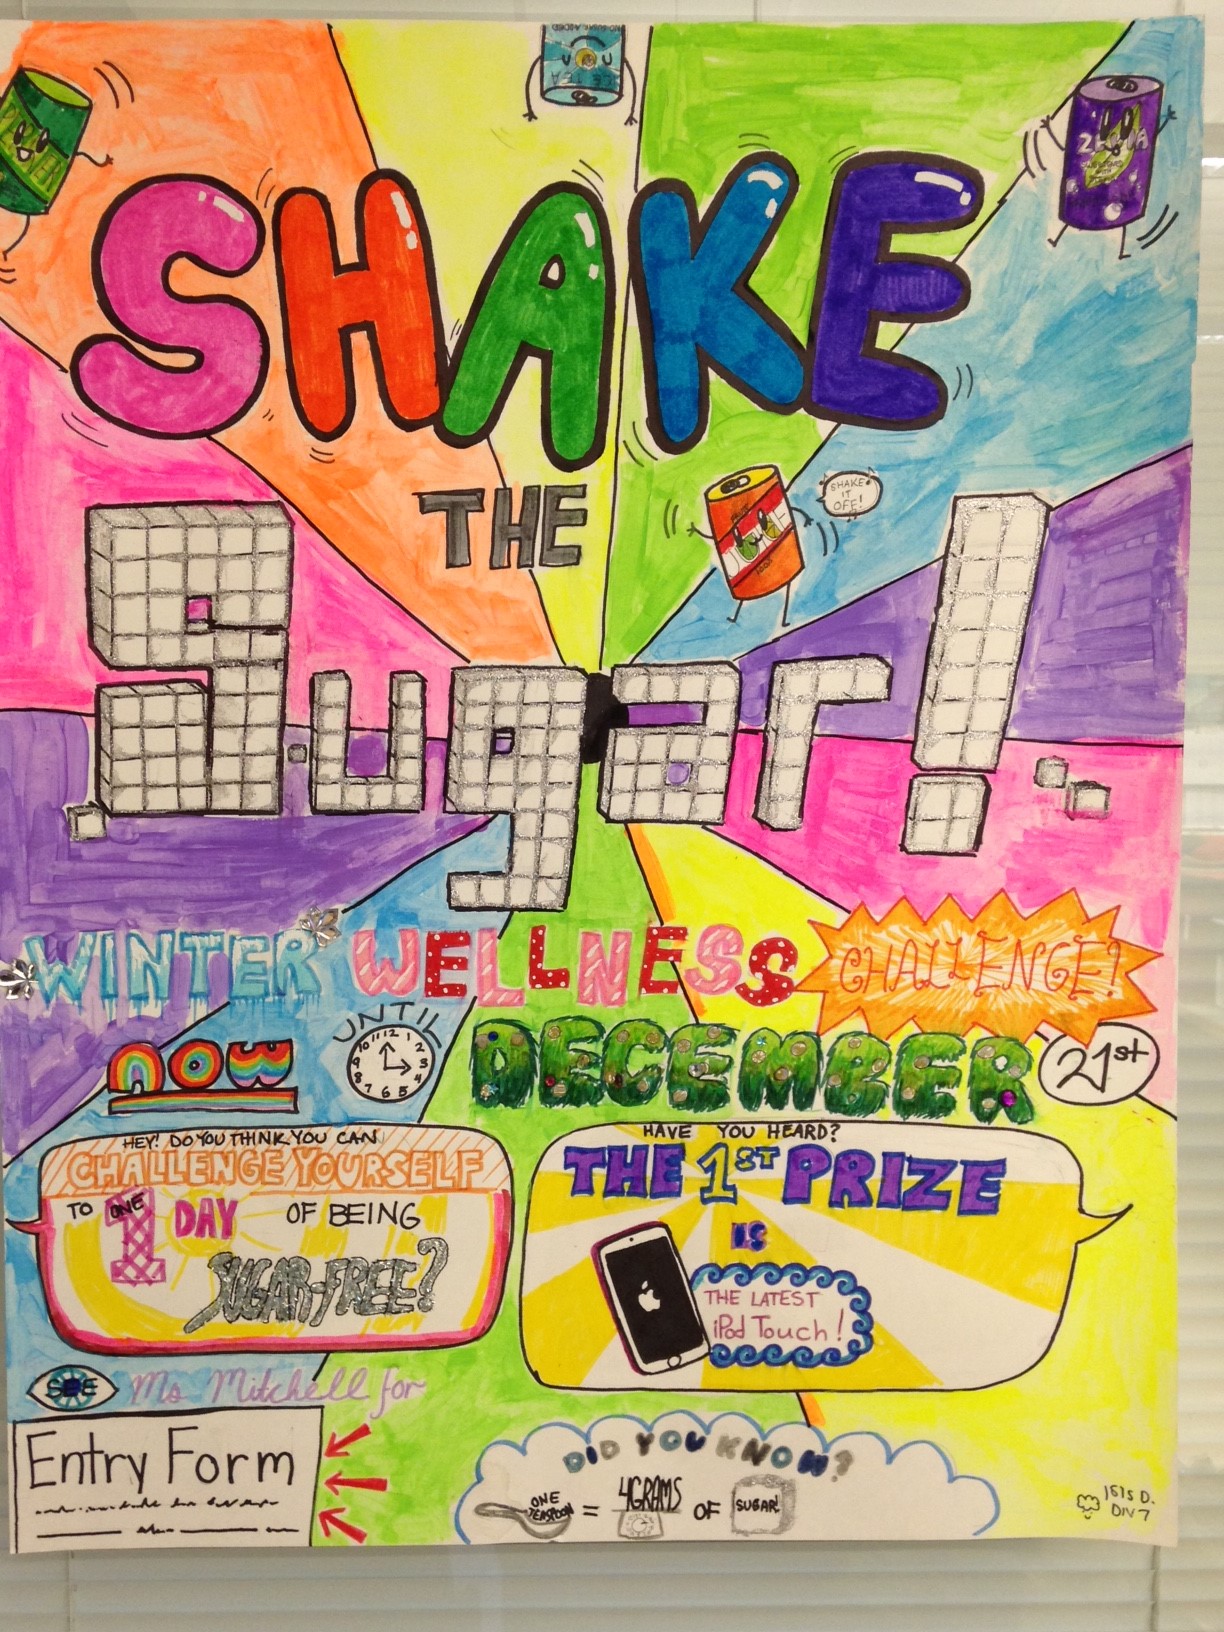 SHAKE
SHAKE IT OFF!
THE
Sugar!
WINTER WELLNESS CHALLENGE!
NOW UNTIL DECEMBER 21st
12 1 2 3 4 5 6 7 8 9 10 11
HEY! DO YOU THINK YOU CAN
CHALLENGE YOURSELF
TO ONE 1 DAY OF BEING
SUGAR-FREE?
HAVE YOU HEARD?
THE 1ST PRIZE
IS
THE LATEST
iPod Touch!
SEE Ms Mitchell for
Entry Form
DID YOU KNOW?
ONE TEASPOON = 4GRAMS OF SUGAR!
ISIS D.
DIV 7